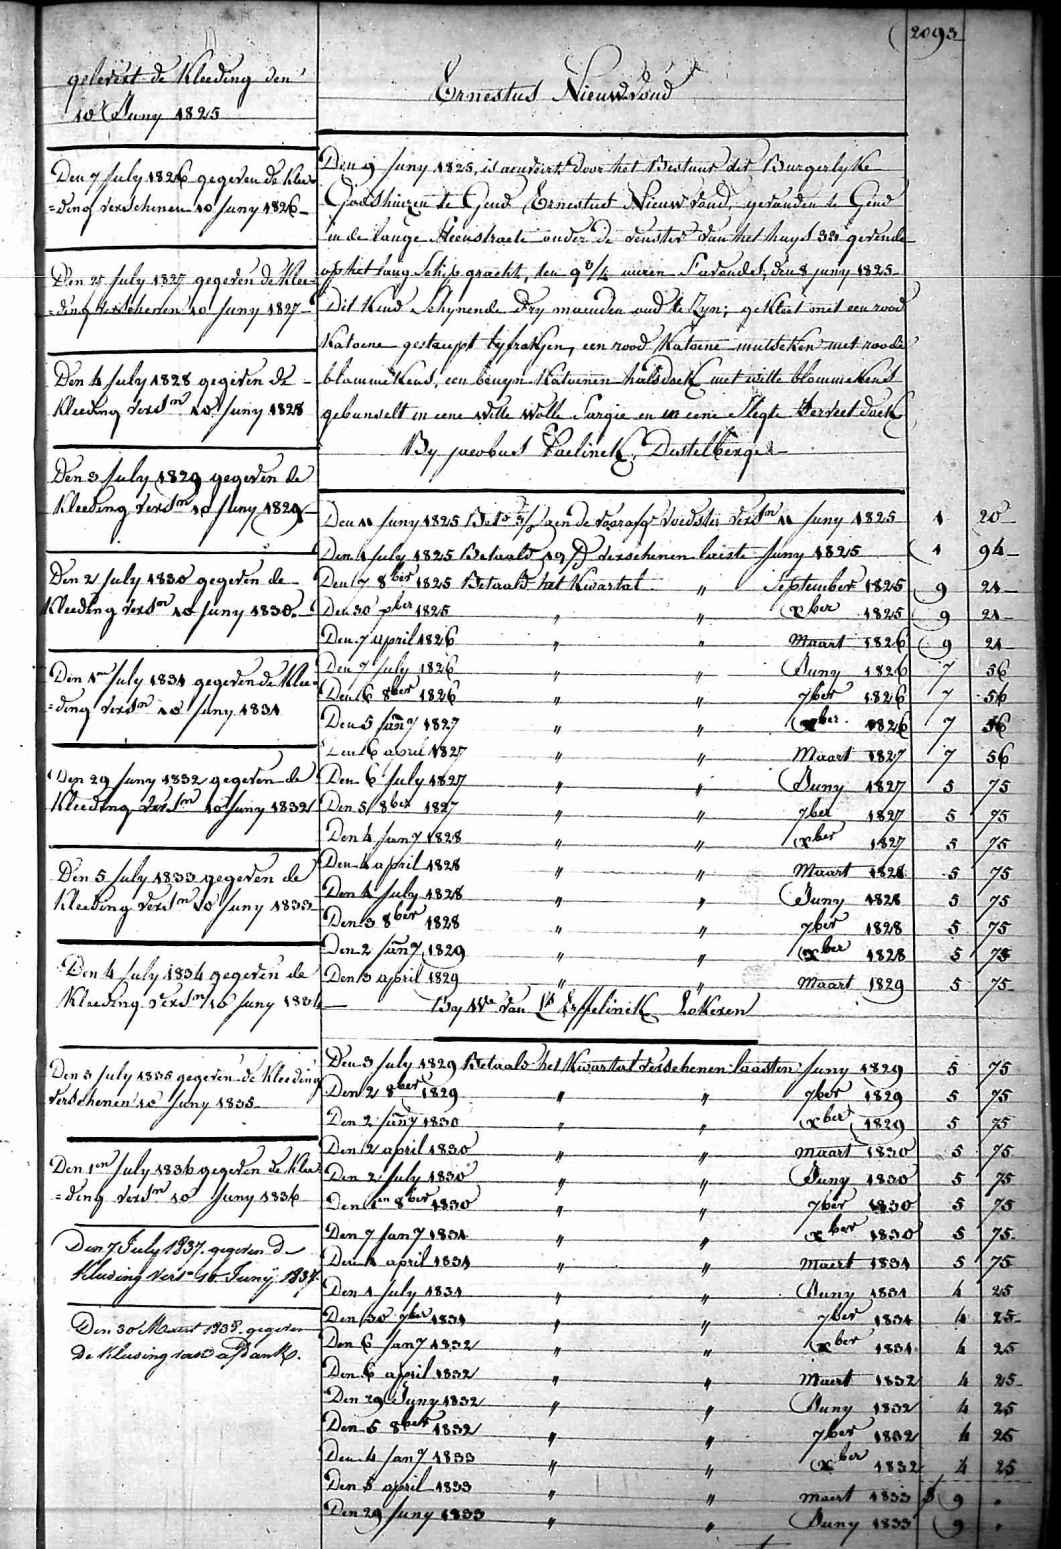 2093
gelevert de Kleeding den
10 Juny 1825
Ernestus Nieuwvoud
Den 7 July 1826 gegeven de Klee=
=ding verschenen 10 Juny 1826
Den 25 July 1827 gegeven de Klee=
=ding verschenen 10 Juny 1827
Den 4 July 1828 gegeven de
Kleeding versn 10 Juny 1828
Den 3 July 1829 gegeven de
Kleeding versn 10 Juny 1829
Den 2 July 1830 gegeven de
Kleeding versn 10 Juny 1830
Den 1en July 1831 gegeven de Klee=
=ding versn 10 Juny 1831
Den 29 Juny 1832 gegeven de
Kleeding versn 10 Juny 1832
Den 5 July 1833 gegeven de
Kleeding versn 10 Juny 1833
Den 4 July 1834 gegeven de
Kleeding versn 10 Juny 1834
Den 3 July 1835 gegeven de Kleeding
verschenen 10 Juny 1835
Den 1en July 1836 gegeven de Klee
=ding versn 10 Juny 1836
Den 7 July 1837 gegeven de
Kleeding versn 10 Junij 1837.
Den 30 Maert 1838 gegeven
de Kleeding van afdank.
Den 9 Juny 1825, is aenveirt door het Bestuur der Burgerlyke
Godshuizen te Gend Ernestus Nieuwvoud, gevonden te Gend
in de lange Steenstraete onder de venster van het huys 33 gevende
op het lang Schipgracht, ten 9 3/4 uuren s'avonds, den 8 juny 1825
Dit Kind Schynende dry maenden oud te zyn; gekleet met een rood
Katoene gestreept byfrakjen, een rood Katoene mutseken met roode
blommekens, een bruyn Katoenen halsdoek met witte blommekens
gebunselt in eene witte wolle Sargie en in eene Slegte Servet doek
By Jacobus Paelinck, Destelbergen
Den 11 Juny 1825 Bet. aen de voorafge voedster versn 11 Juny 1825 1 20
Den 1 July 1825 Betaald 19 D verschenen laeste Juny 1825 1 94
Den 7 8ber 1825 Betaald het Kwartal " September 1825 9 21
Den 30 xber 1825 " " xber 1825 9 21
Den 7 april 1826 " " Maart 1826 9 21
Den 7 July 1826 " " Juny 1826 7 56
Den 6 8ber 1826 " " 7ber 1826 7 56
Den 5 Jany 1827 " " xber 1826 7 56
Den 6 april 1827 " " Maart 1827 7 56
Den 6 July 1827 " " Juny 1827 5 75
Den 5 8ber 1827 " " 7ber 1827 5 75
Den 4 Jany 1828 " " xber 1827 5 75
Den 4 april 1828 " " Maart 1828 5 75
Den 4 July 1828 " " Juny 1828 5 75
Den 3 8ber 1828 " " 7ber 1828 5 75
Den 2 Jany 1829 " " xber 1828 5 75
Den 3 april 1829 " " Maart 1829 5 75
By We van Lokeren
Den 3 July 1829 Betaald het Kwartal verschenen laasten Juny 1829 5 75
Den 2 8ber 1829 " " 7ber 1829 5 75
Den 2 Jany 1830 " " xber 1829 5 75
Den 2 april 1830 " " maart 1830 5 75
Den 2 July 1830 " " Juny 1830 5 75
Den 1en 8ber 1830 " " 7ber 1830 5 75
Den 7 Jany 1831 " " xber 1830 5 75
Den 1 april 1831 " " maert 1831 5 75
Den 1 July 1831 " " Juny 1831 4 25
Den 30 7ber 1831 " " 7ber 1831 4 25
Den 6 Jany 1832 " " xber 1831 4 25
Den 6 april 1832 " " Maert 1832 4 25
Den 29 Juny 1832 " " Juny 1832 4 25
Den 5 8ber 1832 " " 7ber 1832 4 25
Den 4 Jany 1833 " " xber 1832 4 25
Den 5 april 1833 " " maert 1833 9 "
Den 29 Juny 1833 " " Juny 1833 9 "